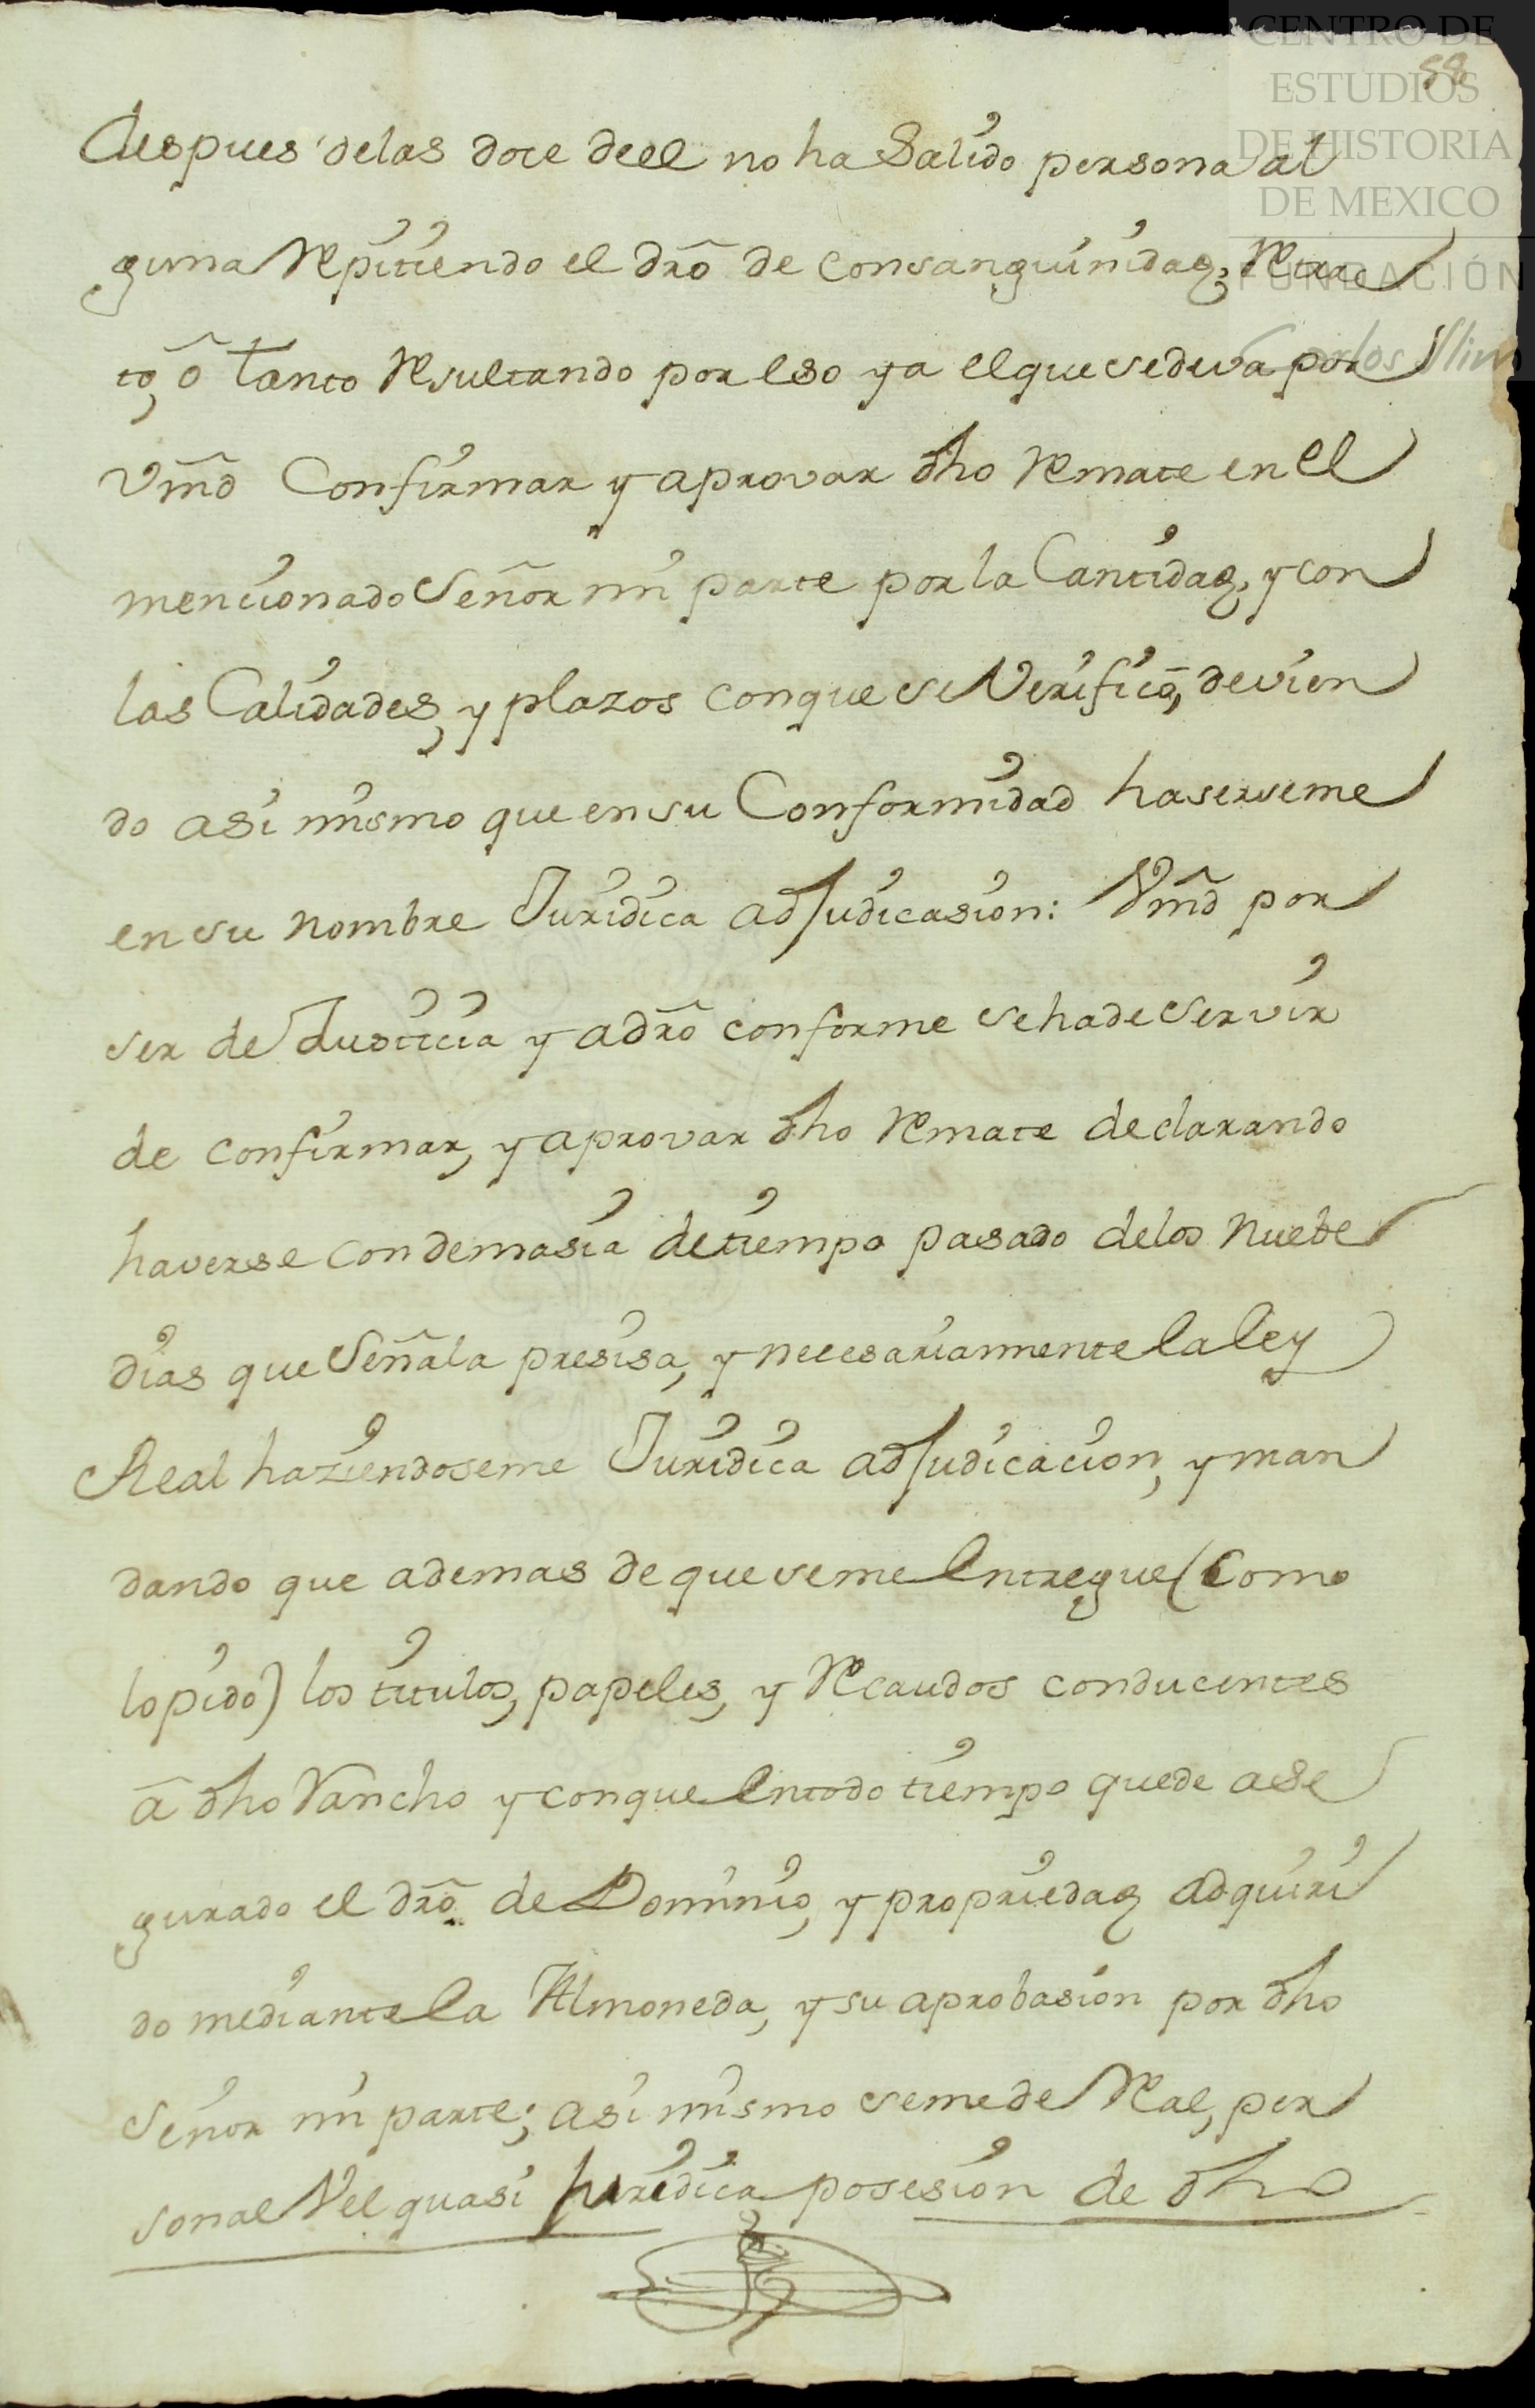 CENTRO DE
ESTUDIOS
DE HISTORIA
DE MEXICO
FUNDACIÓN
Carlos Slim
58
despues delas doce deel no ha Salido persona al
guna Repitiendo el dr̃o de consanguinidad, Retrac
to, ô tanto Resultando por eso ya el que se deva por
Vm̃d Confirmar y aprovar dho Remate en el
mencionado Señor mi parte por la Cantidad, y con
las Calidades, y plazos con que se Verificó, devien
do asi mismo que en su Conformidad haserseme
en su nombre Juridica adjudicasion: Vm̃d por
ser de Justicia y a dr̃o conforme se ha de servir
de confirmar, y aprovar dho Remate declarando
haverse con demasia de tiempo pasado delos nuebe
dias que Señala presisa, y necesariamente la ley
Real haziendoseme Juridica adjudicacion, y man
dando que ademas de que se me Entregue (Como
lo pido) los titulos, papeles, y Recaudos conducentes
â dho Rancho y con que En todo tiempo quede ase
gurado el dr̃o de Dominio, y propriedad adquiri
do mediante la Almoneda, y su aprobasion por dho
Señor mi parte; asi mismo se me de Real, per
sonal Vel quasi juridica posesion de dho